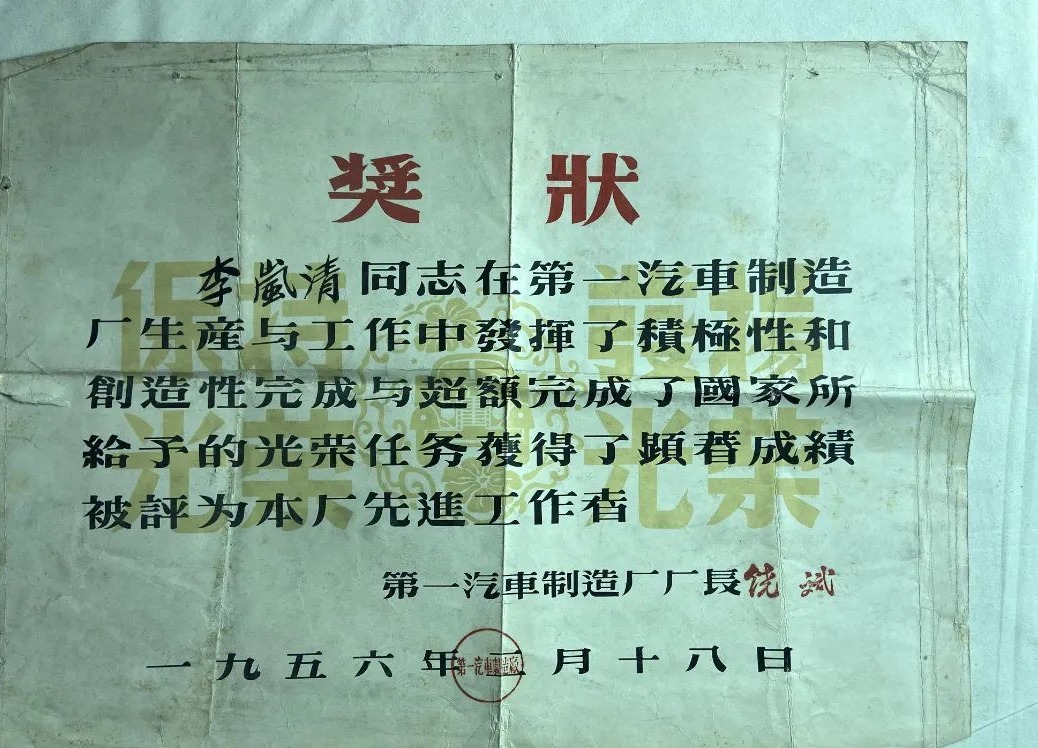 奬狀
李嵐清同志在第一汽車制造
厂生産与工作中發揮了積極性和
創造性完成与超額完成了國家所
給予的光荣任务獲得了顕著成績
被評为本厂先進工作者
保持光荣
發揚光荣
第一汽車制造厂厂長饶斌
一九五六年二月十八日
第一汽車製造廠